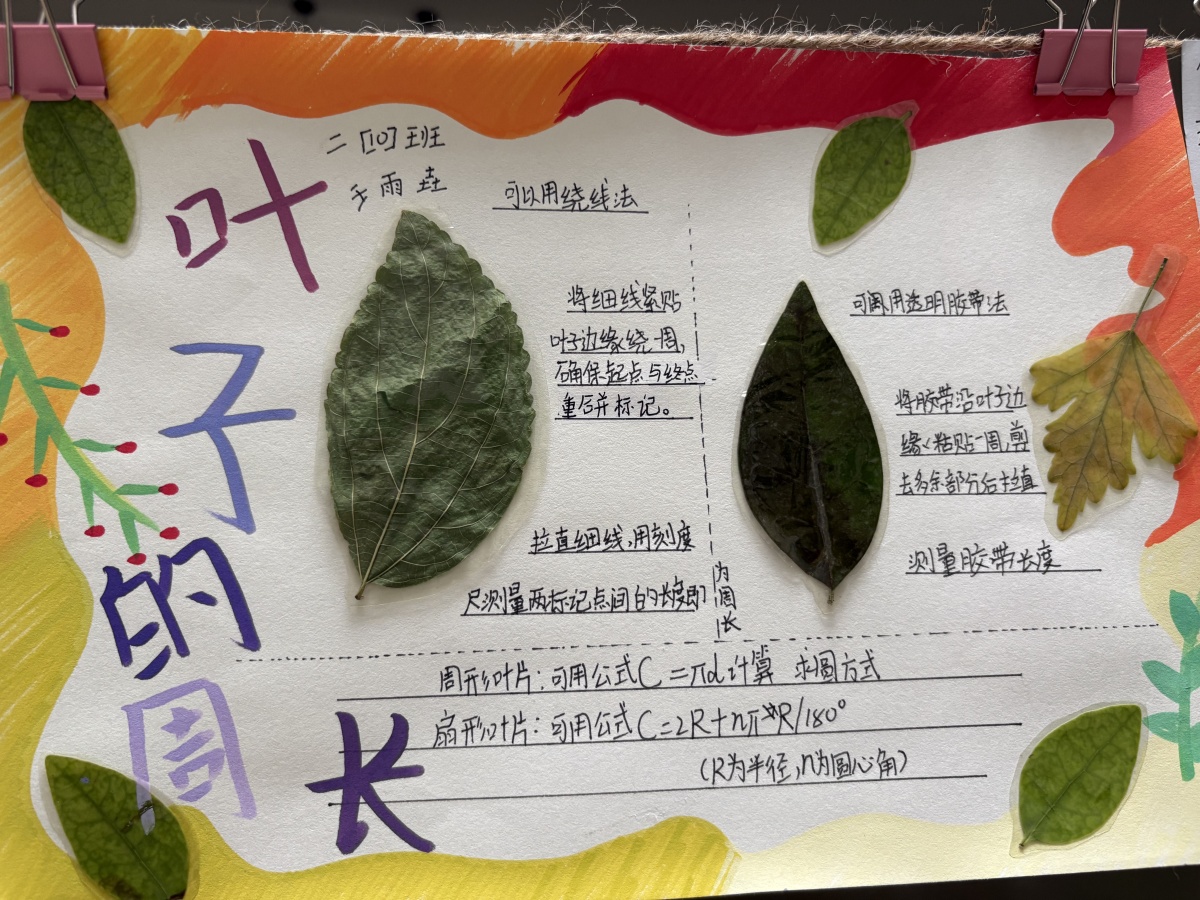 叶子的周长
二[10]班
王雨垚
可以用绕线法
将细线紧贴
叶子边缘绕一周,
确保起点与终点
重合并标记。
拉直细线,用刻度
尺测量两标记点间的长度即
为周长
用透明胶带法
将胶带沿叶子边
缘粘贴一周,剪
去多余部分后拉直
测量胶带长度
周形叶片:可用公式C=πd计算 求圆方式
扇形叶片:可用公式C=2R+nπR/180°
(R为半径,n为圆心角)